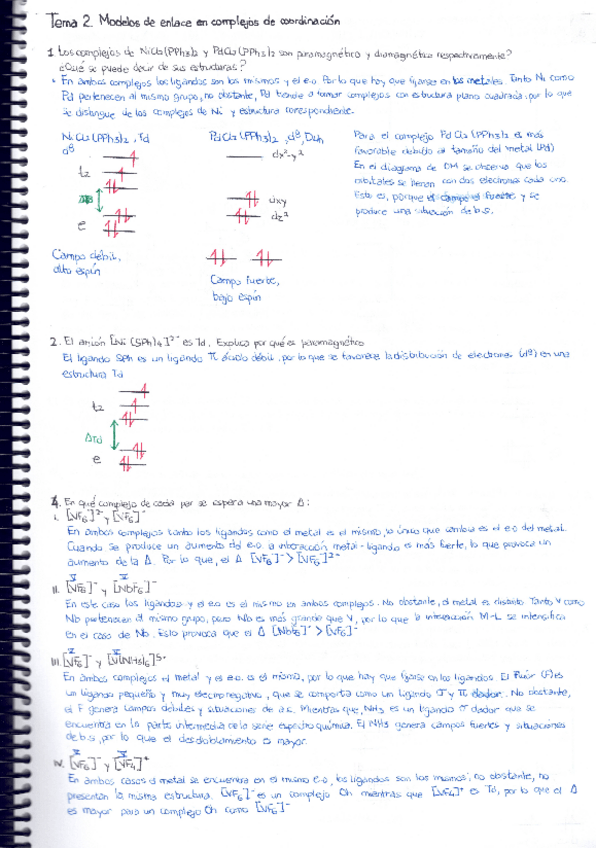 Tema 2. Modelos de enlace en complejos de coordinación
1. Los complejos de NiCl2(PPh3)2 y PdCl2(PPh3)2 son paramagnético y diamagnético respectivamente?
¿Qué se puede decir de sus estructuras?
En ambos complejos los ligandos son los mismos y el e.o. Por lo que hay que fijarse en los metales. Tanto Ni como
Pd pertenecen al mismo grupo, no obstante, Pd tiende a formar complejos con estructura plano cuadrada, por lo que
se distingue de los complejos de Ni y estructura correspondiente.
NiCl2(PPh3)2, Td
d8
t2
e
Campo débil,
alto espín
PdCl2(PPh3)2, d8, D4h
dx2-y2
dxy
dz2
Campo fuerte,
bajo espín
Para el complejo PdCl2(PPh3)2 es más
favorable debido al tamaño del metal (Pd)
En el diagrama de OM se observa que los
orbitales se llenan con dos electrones cada uno.
Esto es, porque el campo es fuerte y se
produce una situación de b.s.
2. El anión [Ni(SPh)4]2- es Td. Explica por qué es paramagnético
El ligando SPh es un ligando π débil, por lo que se favorece la distribución de electrones (d8) en una
estructura Td
t2
ΔTd
e
4. En qué complejo de cada par se espera una mayor Δ:
i. [VF6]2- y [VF6]-
En ambos complejos tanto los ligandos como el metal es el mismo, lo único que cambia es el e.o del metal.
Cuando se produce un aumento del e.o. la interacción metal-ligando es más fuerte, lo que provoca un
aumento de la Δ. Por lo que, el Δ [VF6]- > [VF6]2-
II. [VF6]- y [NbF6]-
En este caso los ligandos y el e.o es el mismo en ambos complejos. No obstante, el metal es distinto. Tanto V como
Nb pertenecen al mismo grupo, pero Nb es más grande que V, por lo que la interacción M-L se intensifica
en el caso de Nb. Esto provoca que el Δ [NbF6]- > [VF6]-
III. [VF6]- y [V(NH3)6]5+
En ambos complejos el metal y es e.o. es el mismo, por lo que hay que fijarse en los ligandos. El Flúor (F) es
un ligando pequeño y muy electronegativo, que se comporta como un ligando σ y π dador. No obstante,
el F genera campos débiles y situaciones de a.s. Mientras que, NH3 es un ligando σ dador que se
encuentra en la parte intermedia de la serie espectroquímica. El NH3 genera campos fuertes y situaciones
de b.s, por lo que el desdoblamiento es mayor.
IV. [VF6]- y [VF4]+
En ambos casos el metal se encuentra en el mismo e.o, los ligandos son los mismos; no obstante, no
presentan la misma estructura. [VF6]- es un complejo Oh mientras que [VF4]+ es Td, por lo que el Δ
es mayor para un complejo Oh como [VF6]-